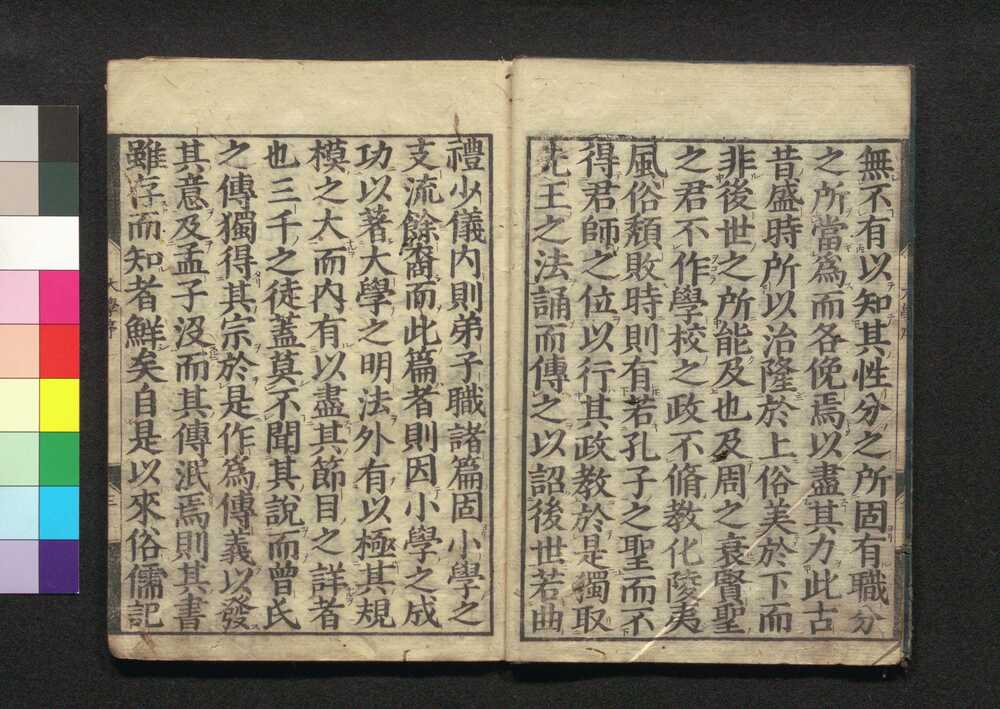 無不有以知其性分之所固有職分
之所當爲而各俛焉以盡其力此古
昔盛時所以治隆於上俗美於下而
非後世之所能及也及周之衰賢聖
之君不作學校之政不脩教化陵夷
風俗頽敗時則有若孔子之聖而不
得君師之位以行其政教於是獨取
先王之法誦而傳之以詔後世若曲
禮少儀内則弟子職諸篇固小學之
支流餘裔而此篇者則因小學之成
功以著大學之明法外有以極其規
模之大而内有以盡其節目之詳者
也三千之徒蓋莫不聞其說而曽氏
之傳獨得其宗於是作爲傳義以發
其意及孟子沒而其傳泯焉則其書
雖存而知者鮮矣自是以來俗儒記
大學序